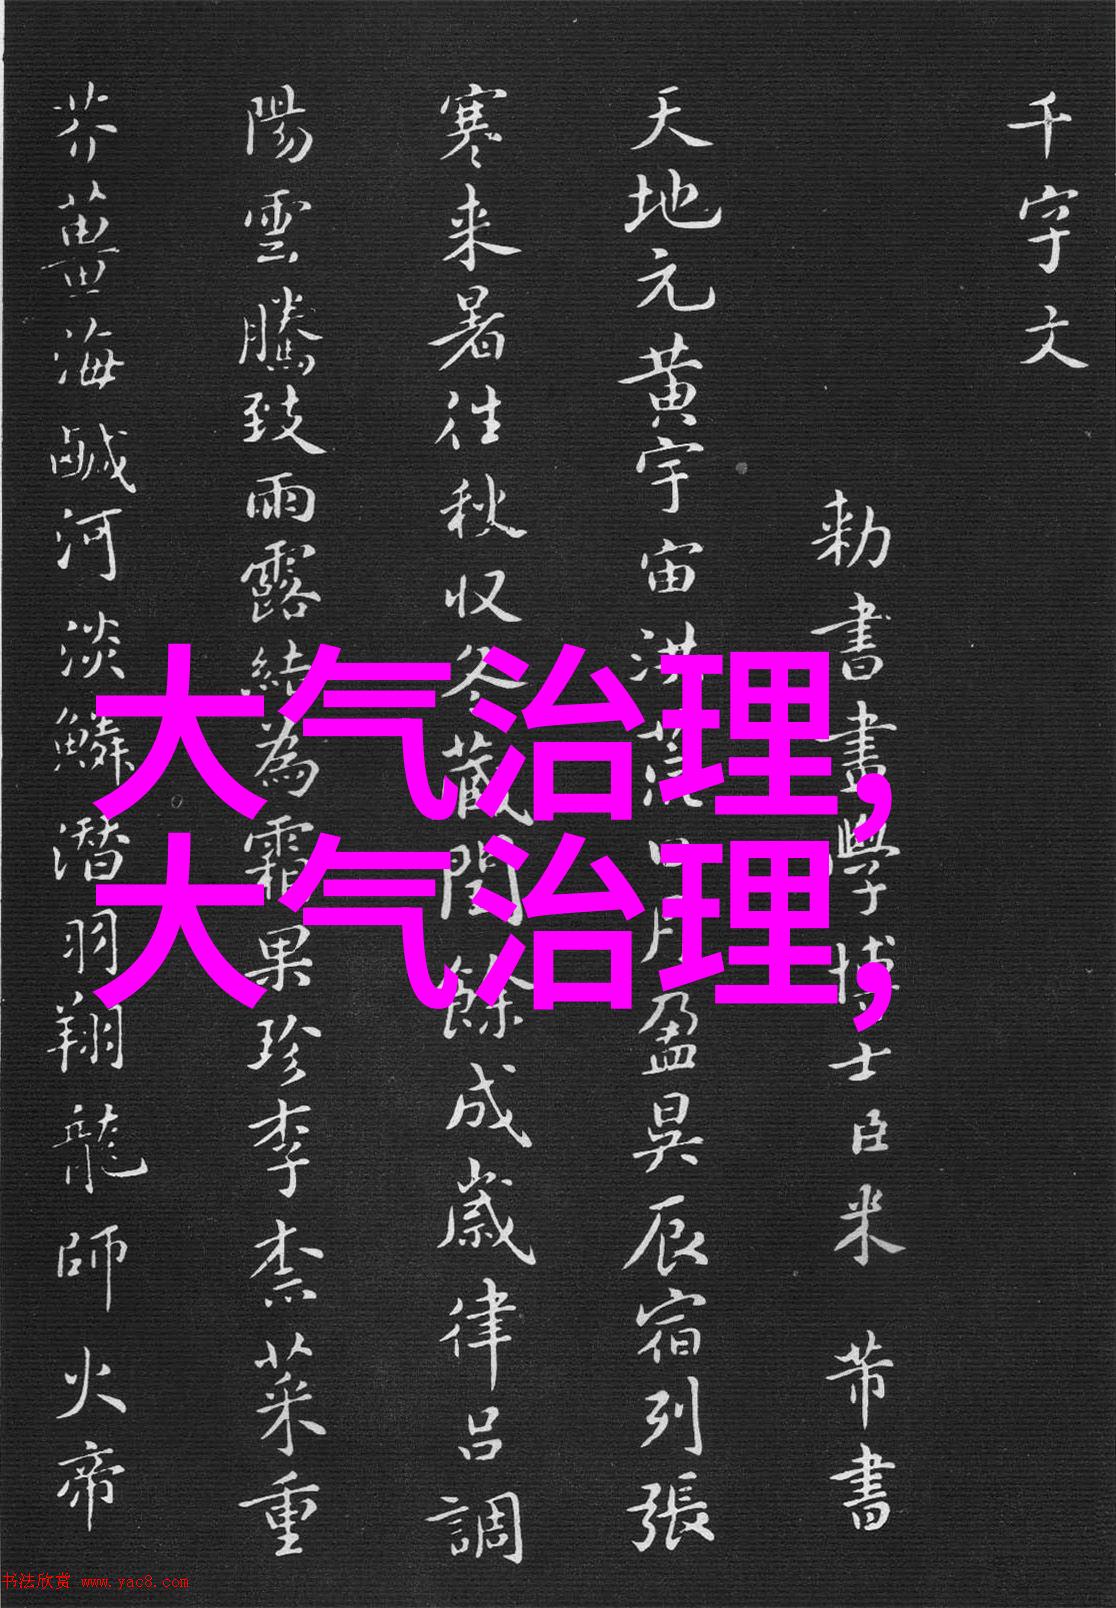 千字文
勅書畫學博士臣米芾書
天地元黄宇宙洪荒日月盈昃辰宿列張
寒来暑往秋收冬藏閏餘成歲律吕調
陽雲騰致雨露結為霜果珍李柰菜重
芥薑海鹹河淡鱗潛羽翔龍師火帝
大气治理,
大气治理,
书法欣赏 www.yac8.com